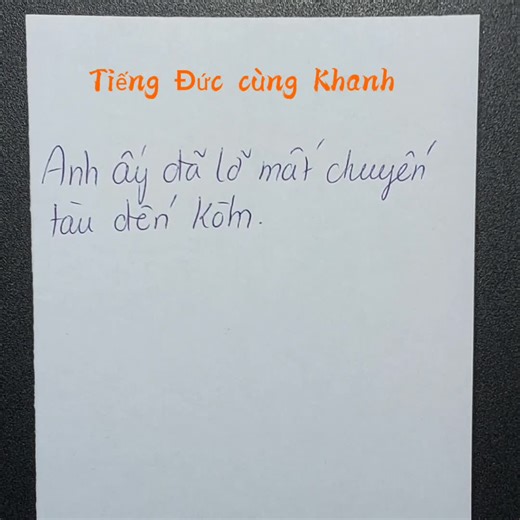 Tiếng Đức cùng Khanh
Anh ấy đã lỡ mất chuyến
tàu đến Köln.